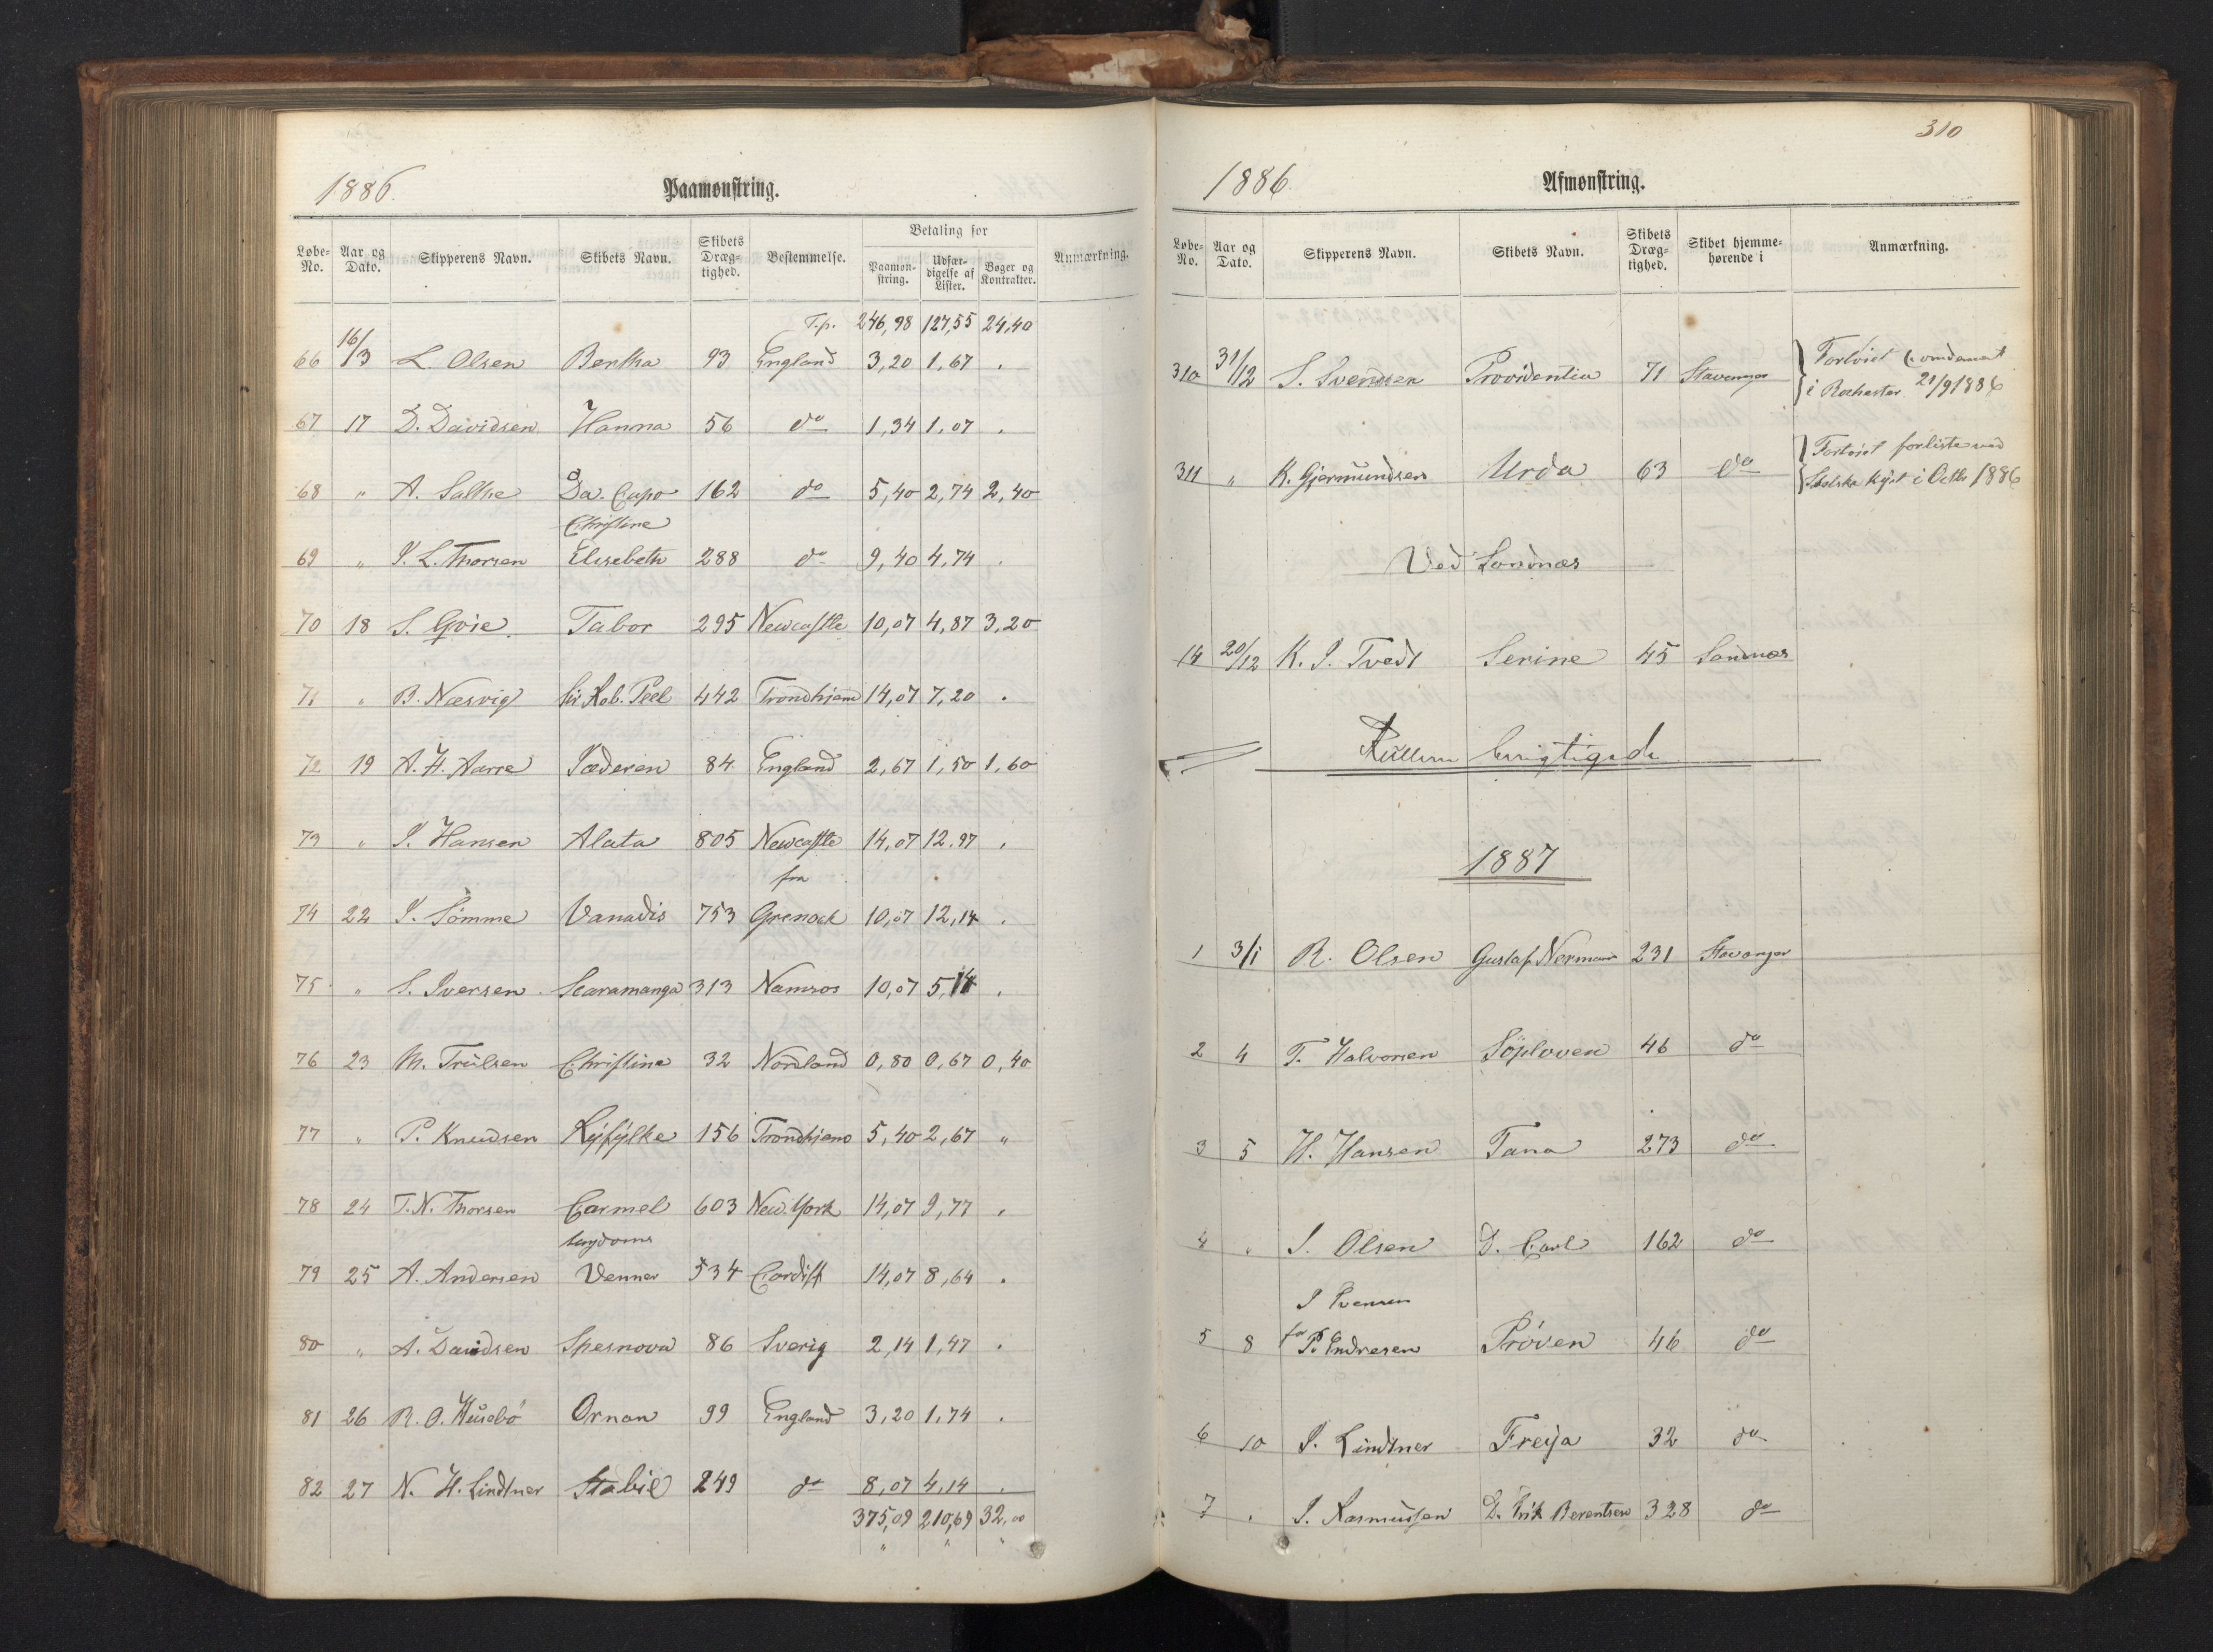 1886. Paamønstring.
Løbe-No. Aar og Dato. Skipperens Navn. Skibets Navn. Skibets Dræg-tighed. Bestemmelse. Betaling for Paamøn-string. Udfær-digelse af Lister. Bøger og Kontrakter. Anmærkning.
T.p. 246,98 127,55 24,40
66 16/3 L. Olsen Bertha 93 England 3,20 1,67 .
67 17 D. Davidsen Hanna 56 do 1,34 1,07 .
68 " A. Salthe Da. Capo 162 do 5,40 2,74 2,40
Christine
69 " J. L. Thorsen Elisebeth 288 do 9,40 4,74 .
70 18 S. Goie Tabor 295 Newcastle 10,07 4,87 3,20
71 " B. Næsvig Sir Rob. Peel 442 Trondhjem 14,07 7,20 .
72 19 A. H. Aarre Jæderen 84 England 2,67 1,50 1,60
73 " J. Hansen Alata 805 Newcastle 14,07 12,97 .
fra
74 22 J. Sömme Vanadis 753 Grenock 10,07 12,14 .
75 " S. Iversen Scaramanga 313 Namsos 10,07 5,14 .
76 23 M. Trulsen Christine 32 Nordland 0,80 0,67 0,40
77 " P. Knudsen Ryfylke 156 Trondhjem 5,40 2,67 "
78 24 T. N. Thorsen Carmel 603 New York 14,07 9,77 .
Ungdoms
79 25 A. Andersen Venner 534 Cardiff 14,07 8,64 .
80 " A. Davidsen Spesnova 86 Sverig 2,14 1,47 .
81 26 R. O. Husebö Ornan 99 England 3,20 1,74 .
82 27 N. H. Lindtner Stabil 249 do 8,07 4,14 .
375,09 210,69 32,00
310
1886. Afmønstring.
Løbe-No. Aar og Dato. Skipperens Navn. Skibets Navn. Skibets Dræg-tighed. Skibet hjemme-hørende i Anmærkning.
310 31/12 S. Svendsen Providentia 71 Stavanger Fortöiet Condemert
i Rochester 21/9 1886
311 " K. Gjermundsen Urda 63 do Fortöiet forliste ved
Kyst i Octbr 1886
Ved Sandnæs
14 20/12 K. J. Tvedt Serine 45 Sandnæs
Rullerne berigtigede
1887
1 3/1 R. Olsen Gustaf Nerman 231 Stavanger
2 4 T. Halvorsen Söploven 46 do
3 5 H. Hansen Tana 273 do
4 " J. Olsen D. Carl 162 do
J Svensen
5 8 for P. Endresen Pröven 46 do
6 10 J. Lindtner Freija 32 do
7 " J. Rasmussen D. Erik Berentsen 328 do